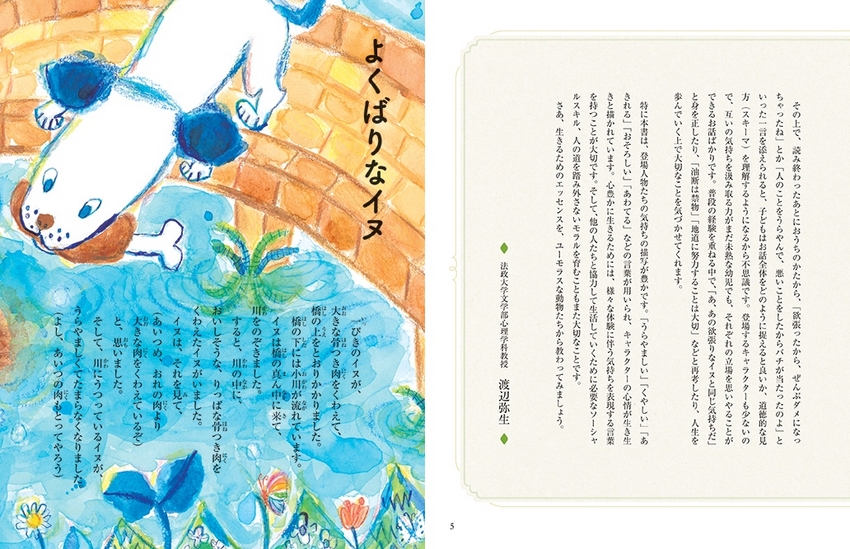 その上で、読み終わったあとにおうちのかたから、「欲張ったから、ぜんぶダメになっ
ちゃったね」とか「人のことをうらやんで、悪いことをしたからバチが当たったのよ」と
いった一言を添えられると、子どもはお話全体をどのように捉えると良いか、道徳的な見
方（スキーマ）を理解するようになるから不思議です。登場するキャラクターも少ないの
で、互いの気持ちを汲み取る力がまだ未熟な幼児でも、それぞれの立場を思いやることが
できるお話ばかりです。普段の経験を重ねる中で、「あ、あの欲張りなイヌと同じ気持ちだ」
と身を正したり、「油断は禁物」「地道に努力することは大切」などと再考したり、人生を
歩んでいく上で大切なことを気づかせてくれます。
特に本書は、登場人物たちの気持ちの描写が豊かです。「うらやましい」「くやしい」「あ
きれる」「おそろしい」「あわてる」などの言葉が用いられ、キャラクターの心情が生き生
きと描かれています。心豊かに生きるためには、様々な体験に伴う気持ちを表現する言葉
を持つことが大切です。そして、他の人たちと協力して生活していくために必要なソーシャ
ルスキル、人の道を踏み外さないモラルを育むこともまた大切なことです。
さあ、生きるためのエッセンスを、ユーモラスな動物たちから教わってみましょう。
法政大学文学部心理学科教授 渡辺弥生
5
よくばりなイヌ
一ぴきのイヌが、
大きな骨つき肉をくわえて、
橋の上をとおりかかりました。
橋の下には小川が流れています。
イヌは橋の真ん中に来て、
川をのぞきました。
すると、川の中に、
おいしそうな、りっぱな骨つき肉を
くわえたイヌがいました。
イヌは、それを見て、
（あいつめ、おれの肉より
大きな肉をくわえているぞ）
と、思いました。
そして、川にうつっているイヌが、
うらやましくてたまらなくなりました。
（よし、あいつの肉もとってやろう）